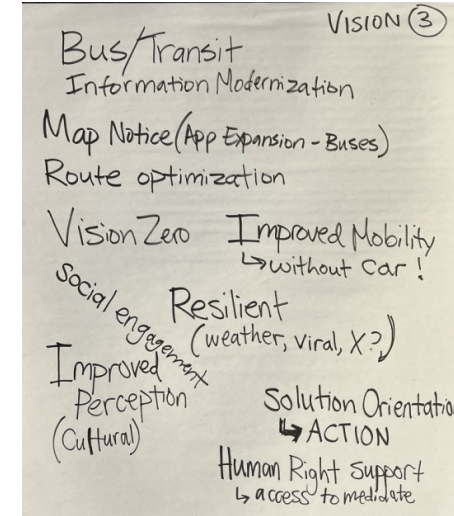 VISION 3
Bus/Transit
Information Modernization
Map Notice (App Expansion - Buses)
Route optimization
Vision Zero
Improved Mobility
↳ without car!
Social engagement
Resilient
(weather, viral, X?)
Improved
Perception
(Cultural)
Solution Orientatio
↳ ACTION
Human Right Support
↳ access to medidate